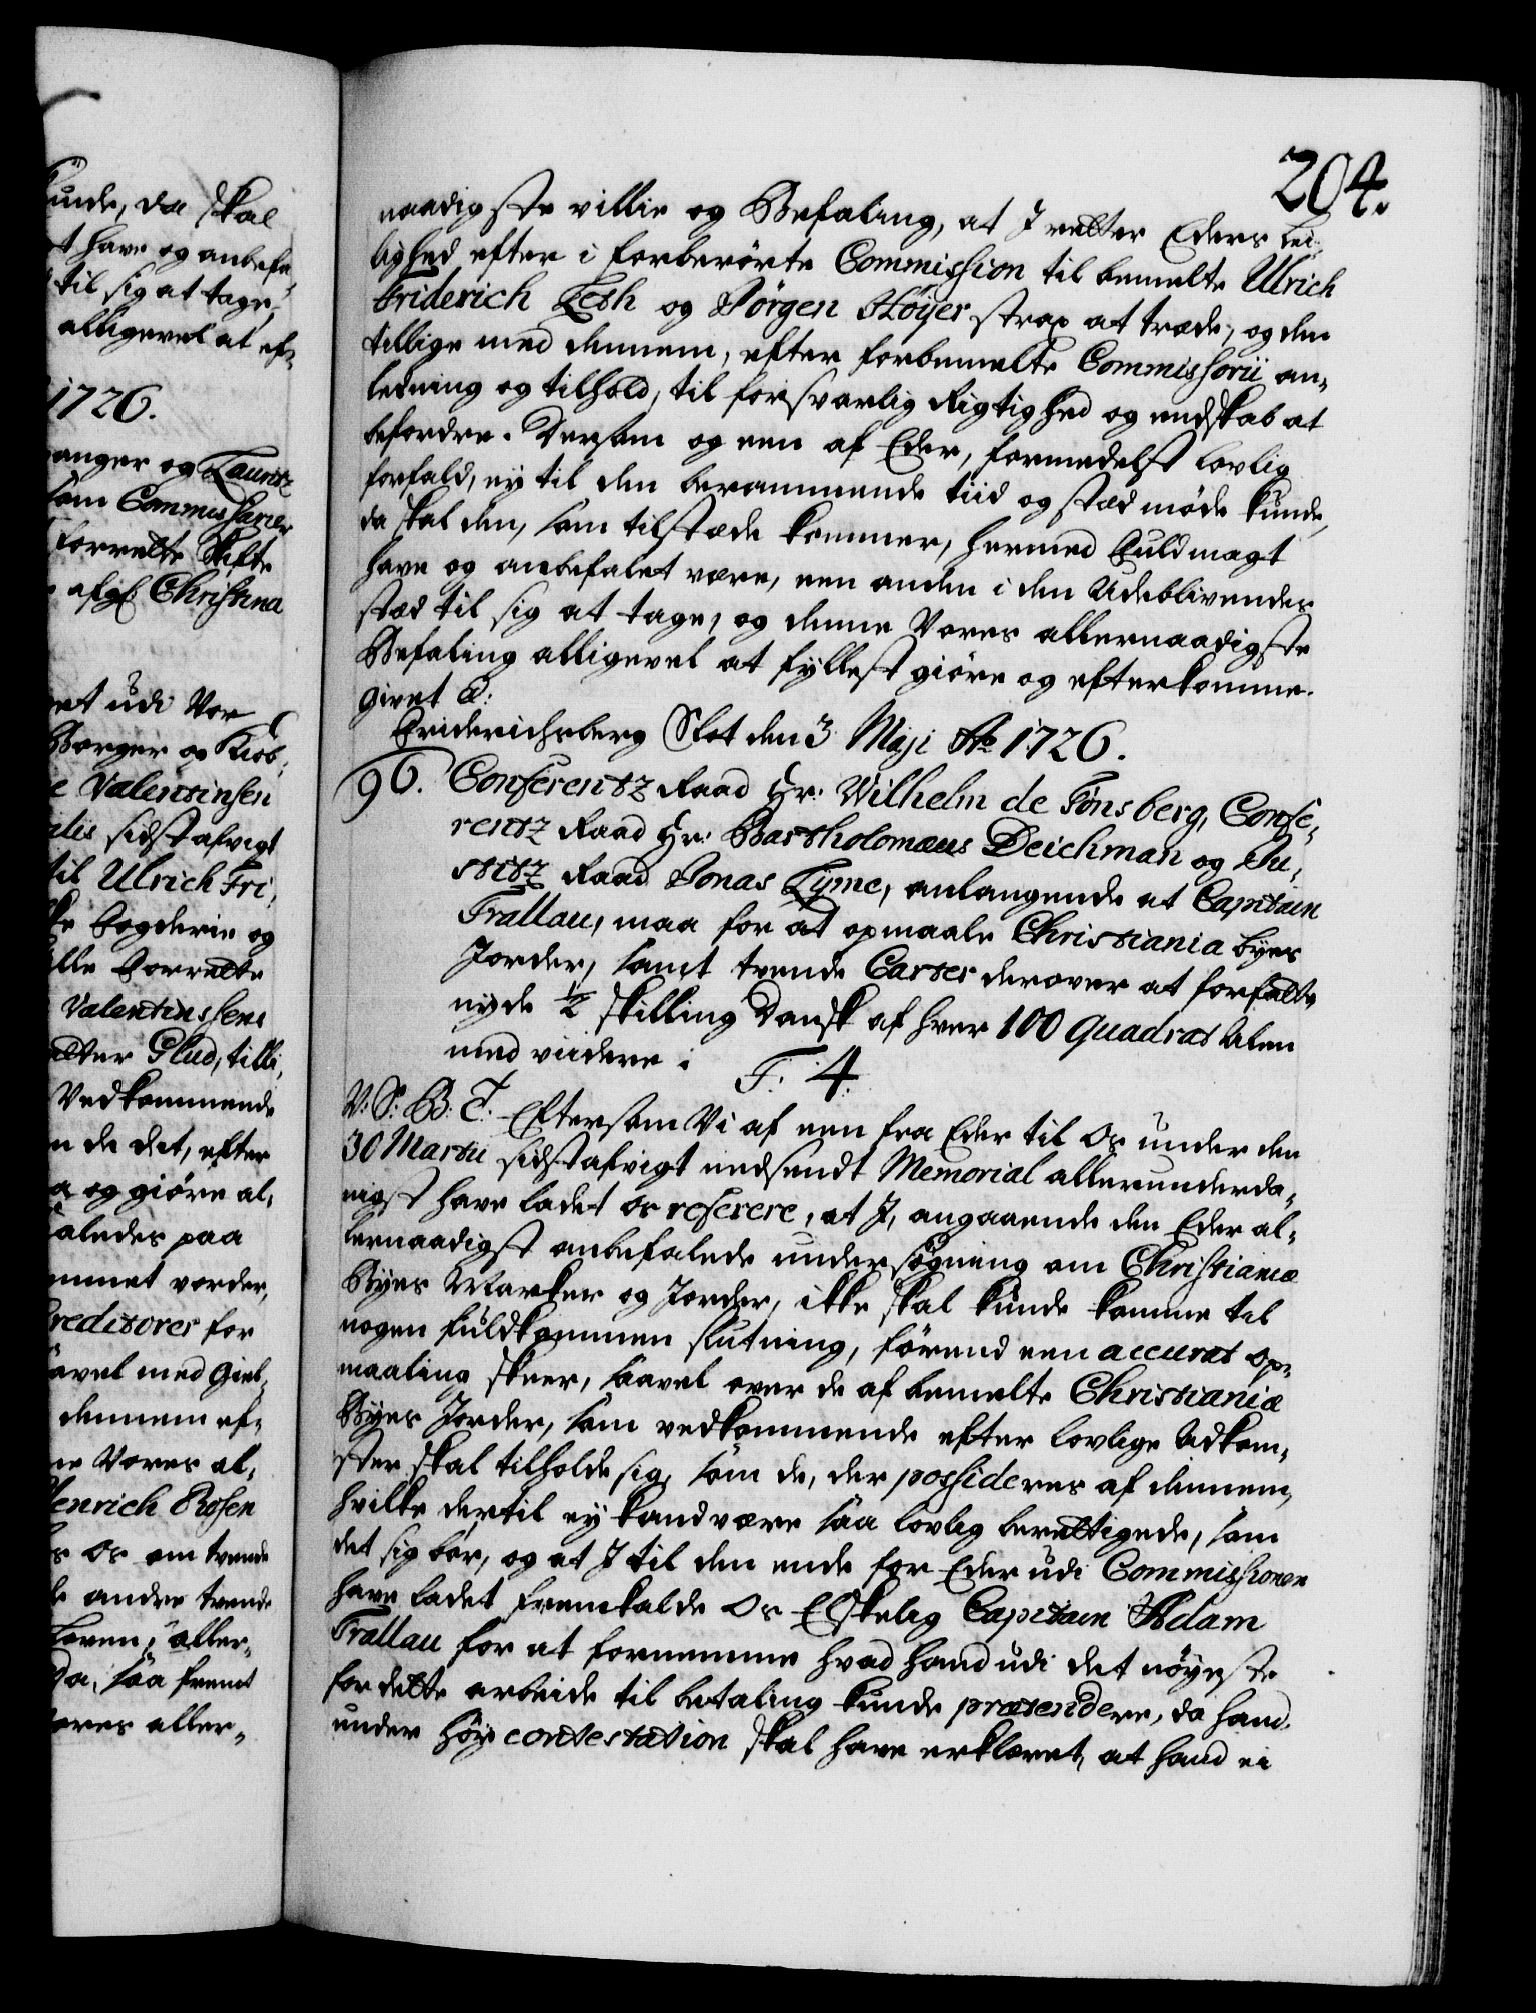 kunde, da skal
t have og anbefa-
til sig at tage,
alligevel at ef-
1726.
anger og Lauritz
som Commissarier
forrette Skifte
afg: Christina
et udi Vor
Borger og Kiøb-
e Valentinsen
sidst afvigt
til Ulrich Fri-
ke Fogderie og
ille Forrette
Valentinssens
etter Glud, tilli-
Vedkommende
n de det, efter
a og giøre al-
saaledes paa
mmet vorder,
Creditorer for
saavel med Giel-
dennem ef-
ne Vores al-
Henrich Rosen
s os om tvende
e andre tvende
Loven, aller-
da, saa fremt
Vores aller-
204.
naadigste villie og Befaling, at I retter Eders lei-
lighed efter i forberørte Commission til bemelte Ulrich
Friderich Resh og Jørgen Høyer strax at træde, og den
tillige med dennem, efter forbemelte Commissorii an-
ledning og tilhold, til forsvarlig Rigtighed og endskab at
befordre. Dersom og een af Eder, formedelst lovlig
forfald, ey til den berammende tiid og stæd møde kunde,
da skal den, som tilstæde kommer, hermed Fuldmagt
have og anbefalet være, een anden i den Udeblivendes
stæd til sig at tage, og denne Vores allernaadigste
Befaling alligevel at fyllest giøre og efterkomme.
Givet &:
Friderichsberg Slot den 3 Maji Ao 1726.
96. Conferentz Raad Hr: Wilhelm de Tønsberg, Confe-
rentz Raad Hr: Bartholomæus Deichman og Ju-
stitz Raad Jonas Lyme, anlangende at Capitain
Trallau, maa for at opmaale Christiania Byes
Jorder, samt tvende Carter derover at forfatte
nyde ½ skilling Dansk af hver 100 Quadrat Alen
med viidere i F: 4.
V: S: B: T: Eftersom Vi af een fra Eder til Os under den
30 Martii sidstafvigt nedsendt Memorial allerunderda-
nigst have ladet os referere, at I, angaaende den Eder al-
lernaadigst anbefalede undersøgning om Christiania
Byes Marker og Jorder, ikke skal kunde komme til
nogen fuldkommen slutning, førend een accurat op-
maaling skeer, saavel over de af bemelte Christiania
Byes Jorder, som vedkommende efter lovlige Adkom-
ster skal tilholde sig, som de, der possideres af dennem,
hvilke dertil ey kand være saa lovlig berettigede, som
det sig bør, og at I til den ende for Eder udi Commissionen
have ladet fremkalde Os Elskelig Capitain Adam
Trallau for at fornemme hvad hand udi det nøyeste
for dette arbeide til betaling kunde prætendere, da hand
under høy contestation skal have erklæret, at hand ei